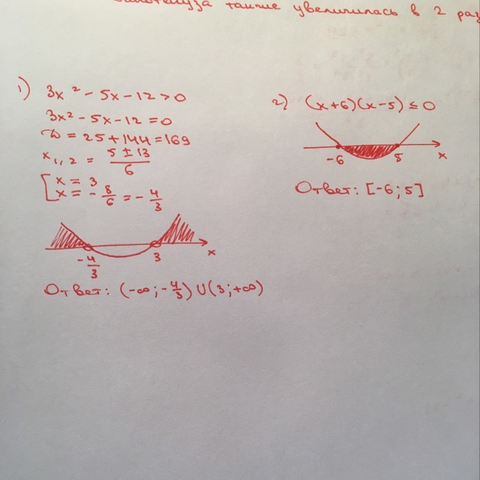 также увеличилась в 2 раз
1) 3x² - 5x - 12 > 0
3x² - 5x - 12 = 0
D = 25 + 144 = 169
x₁,₂ = (5 ± 13)/6
[x = 3
x = -8/6 = -4/3
-4/3 3 x
Ответ: (-∞; -4/3) ∪ (3; +∞)
2) (x+6)(x-5) ≤ 0
-6 5 x
Ответ: [-6; 5]